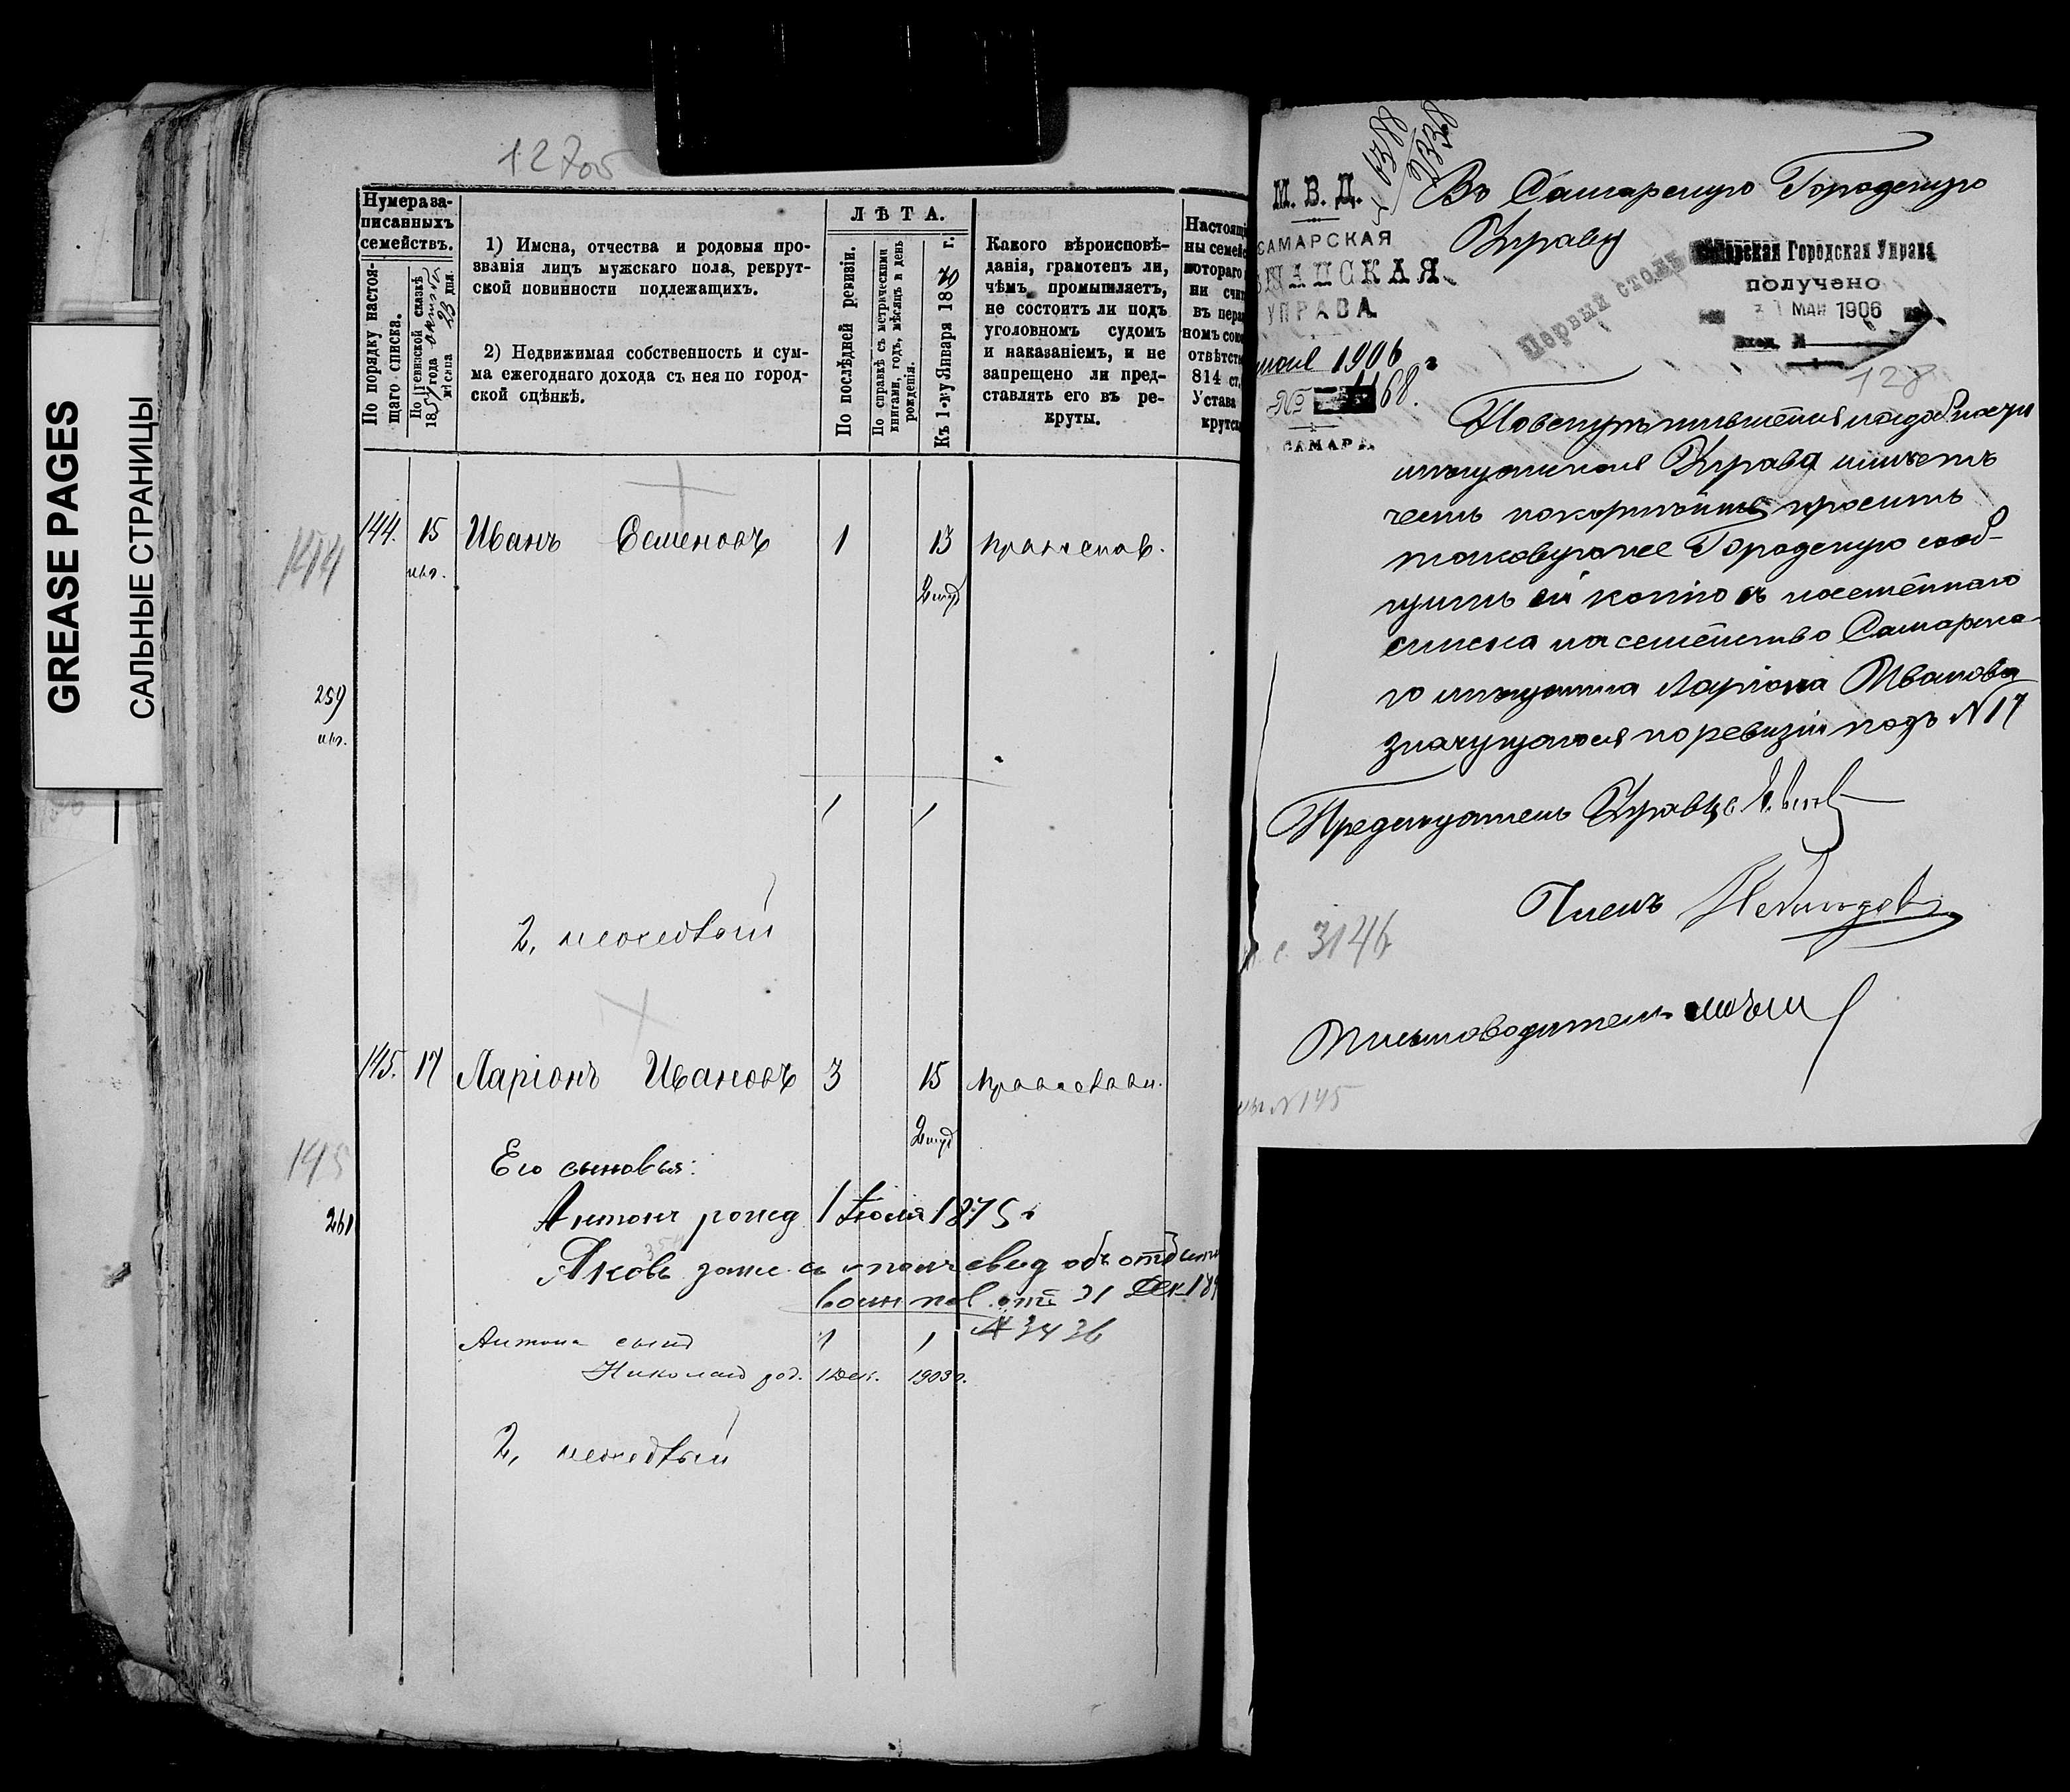 GREASE PAGES
САЛЬНЫЕ СТРАНИЦЫ
127об
Нумера за-
писанныхъ
семействъ.
По порядку настоя-
щаго списка.
По ревизской сказкѣ
185 года
мѣсяца 23 дня.
1) Имена, отчества и родовыя про-
званія лицъ мужскаго пола, рекрут-
ской повинности подлежащихъ.
2) Недвижимая собственность и сум-
ма ежегоднаго дохода съ нея по город-
ской оцѣнкѣ.
ЛѢТА.
По послѣдней ревизіи.
По справкѣ съ метрическими
книгами, годъ, мѣсяцъ и день
рожденія.
Къ 1-му Января 1870 г.
Какого вѣроисповѣ-
данія, грамотенъ ли,
чѣмъ промышляетъ,
не состоитъ ли подъ
уголовномъ судомъ
и наказаніемъ, и не
запрещено ли пред-
ставлять его въ ре-
круты.
Настоящі
ны семей
котораго
ни счит
въ пера
номъ
отвѣтст
814 ст.
Устава
крутск
144. 15 Иванъ Семеновъ 1 13 православ.
144
259
1 1
2,
145. 17 Ларіонъ Ивановъ 3 15 православн.
145
Его сыновья:
261
Антонъ рожд 1 Іюля 1875 г
Яковъ свид объ отбытіи
воин пов. отъ 31 Дек 189
№ 3436
Антона сынъ 1 1
Николай род. 1 Дек. 1903 г.
2,
6288
2338
М. В. Д.
САМАРСКАЯ
ѢЩАНСКАЯ
УПРАВА
мая 1906 г
№ 1168.
САМАРА
Въ Самарскую Городскую
Управу
Первый столъ
Самарская Городская Управа
получено
31 МАЙ 1906
Вход. №
128
Повстрѣтившейся надобности
мѣщанская Управа имѣетъ
честь покорнѣйше просить
таковую же Городскую сооб-
щить ей копію съ посемейнаго
списка на семейство Самарска-
го мѣщанина Ларіона Иванова
значущагося по ревизіи подъ № 17
Предсѣдатель Управы
Членъ
с 3146
Письмоводитель
№ 145